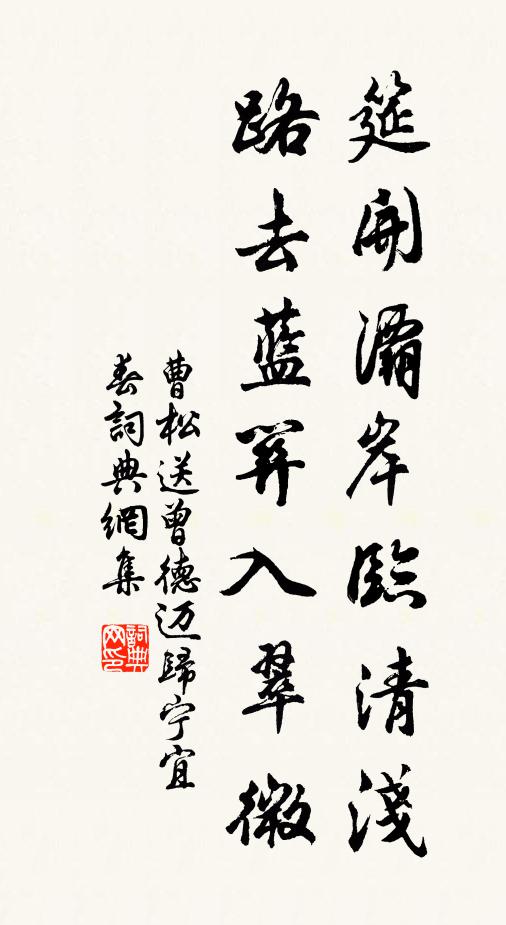 筵開灞岸臨清淺
路去藍關入翠微
曹松送曾德迈歸宁宜
春詞典網集
詞典
网印